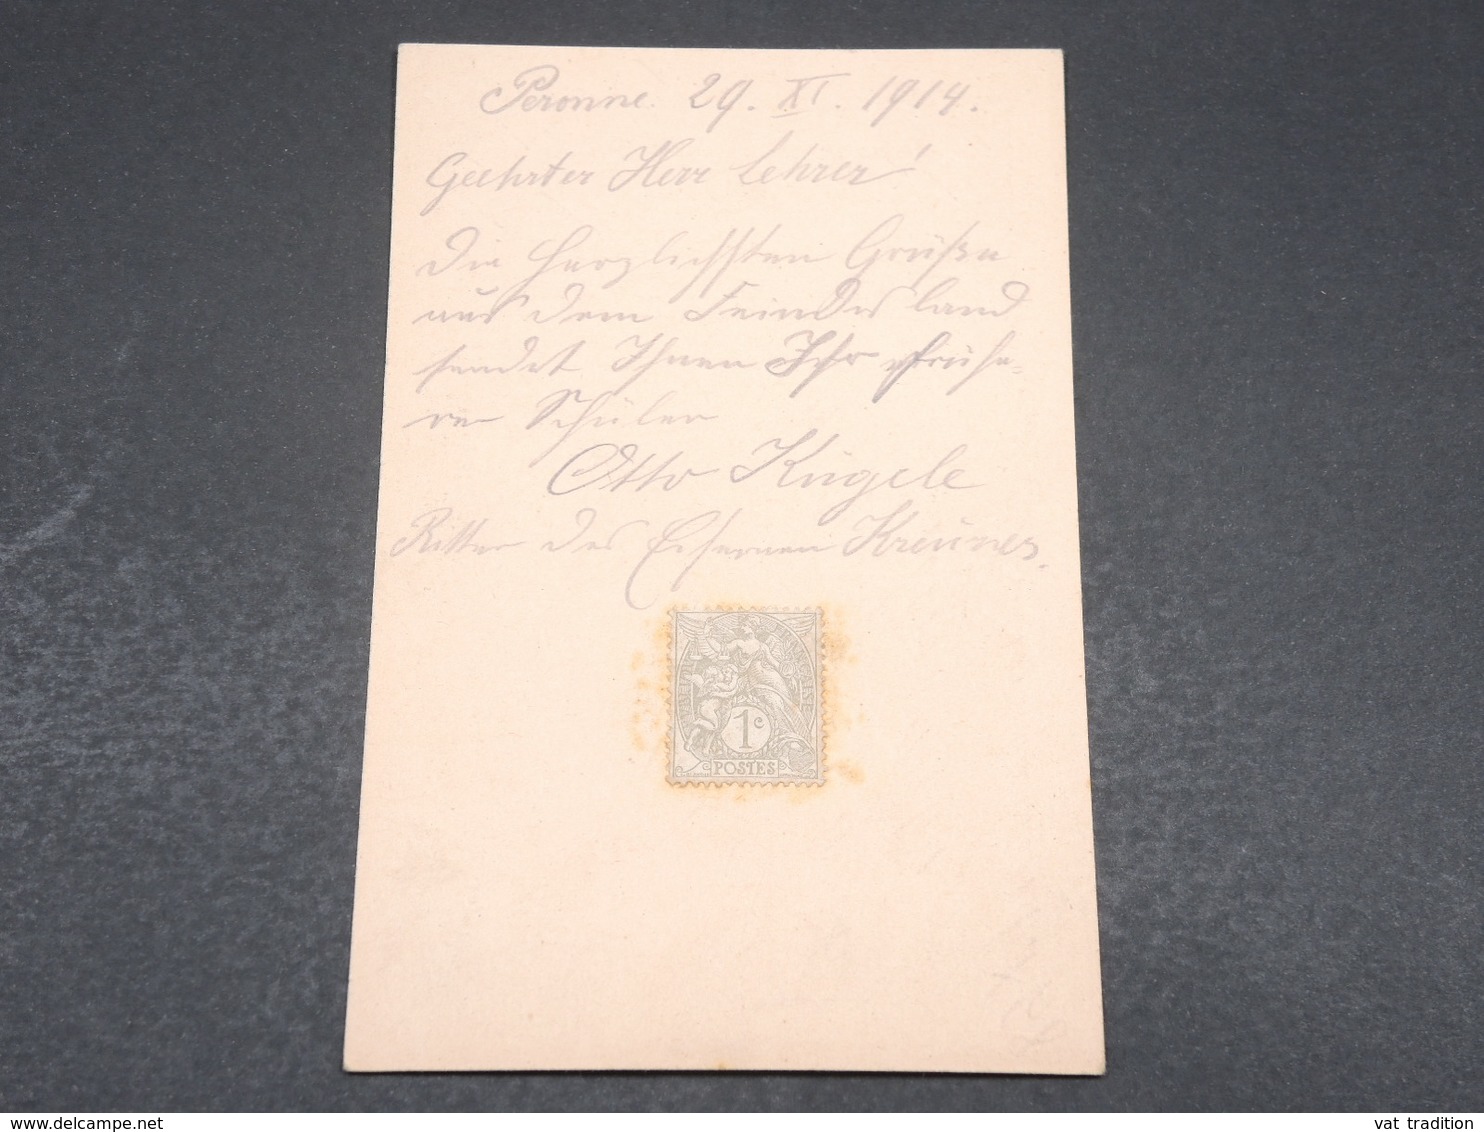 Peronne. 29. XI. 1914.
Geehrter Herr Lehrer!
Die herzlichsten Grüße
aus dem Feindes land
sendet Ihnen Ihr frühe-
rer Schüler
Otto Kügele
Ritter des Eisernen Kreuzes.
1c
POSTES
vat tradition